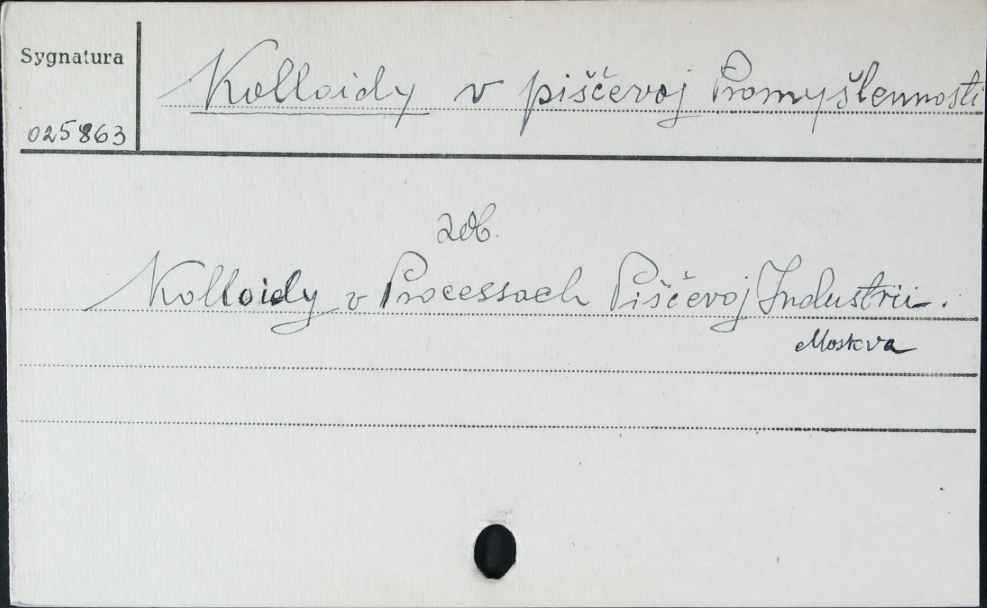 Sygnatura
Kolloidy v piščevoj Promyšlennosti
025863
zob.
Kolloidy v Processach Piščevoj Industrii.
Moskva